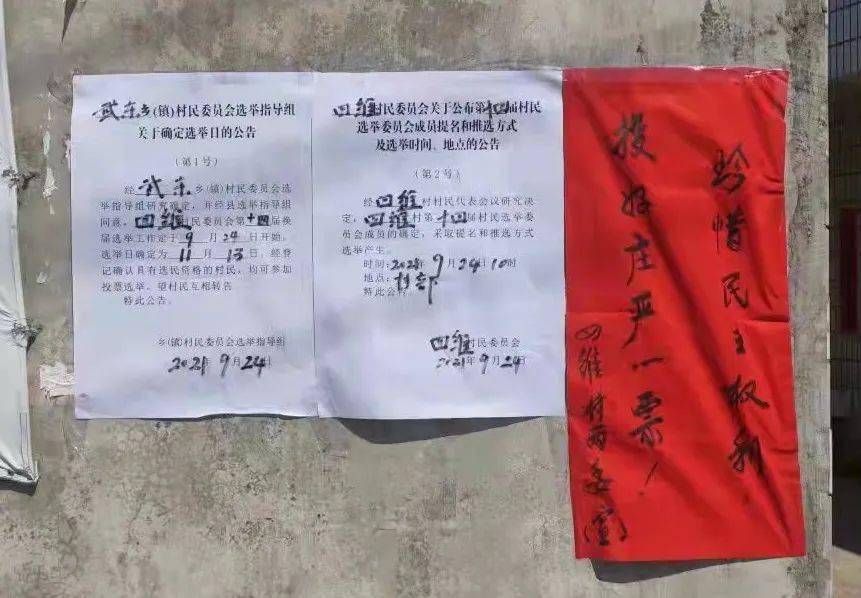 武东乡(镇)村民委员会选举指导组
关于确定选举日的公告
(第1号)
经 武东 乡(镇)村民委员会选
举指导组研究确定，并经县选举指导组
同意，四维村民委员会第十四届换
届选举工作定于 9 月 24 日开始，
选举日确定为 11 月 13 日。经登
记确认具有选民资格的村民，均可参加
投票选举。望村民互相转告
特此公告。
乡(镇)村民委员会选举指导组
2021年 9月24日
四维村民委员会关于公布第十四届村民
选举委员会成员提名和推选方式
及选举时间、地点的公告
(第2号)
经四维村村民代表会议研究决
定，四维村第十四届村民选举委
员会成员的确定，采取提名和推选方式
选举产生。
时间:2021年9月24日10时
地点:村部
特此公告
四维村民委员会
2021年9月24日
珍惜民主权利
投好庄严一票！
四维村两委(宣)